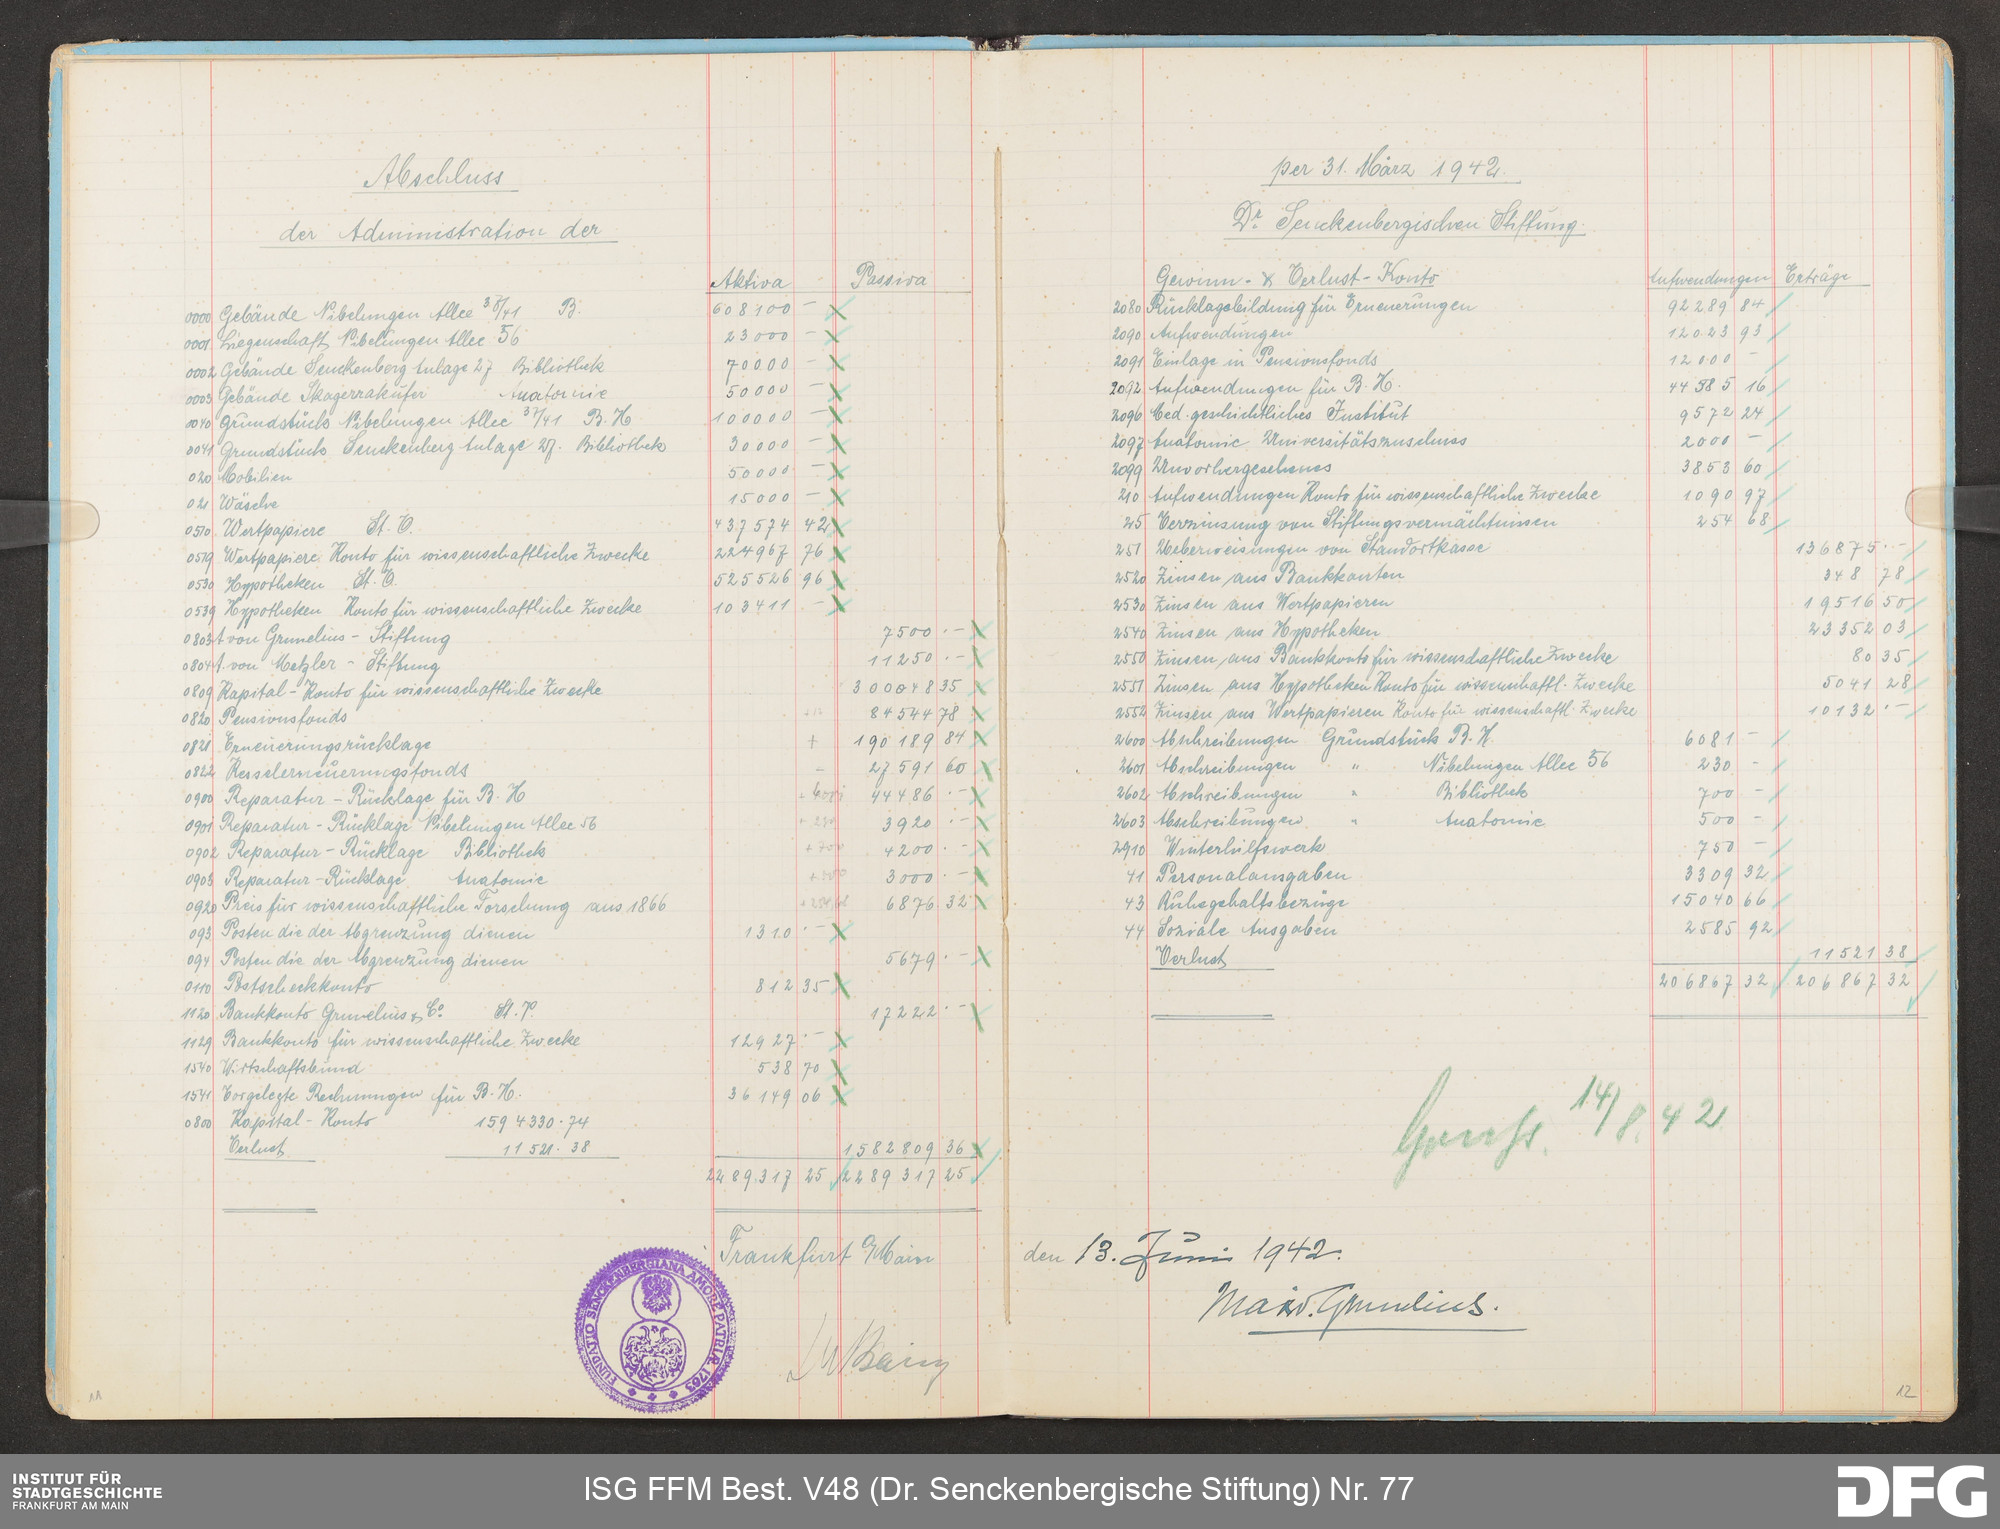 Abschluss
der Administration der
Aktiva Passiva
0000 Gebäude Nibelungen Allee 37/41 B. 608100 –
0001 Liegenschaft Nibelungen Allee 56 23000 –
0002 Gebäude Senckenberg Anlage 27 Bibliothek 70000 –
0003 Gebäude Skagerrakufer Anatomie 50000 –
0040 Grundstück Nibelungen Allee 37/41 B. H 100000 –
0041 Grundstück Senckenberg Anlage 27. Bibliothek 30000 –
020 Mobilien 50000 –
021 Wäsche 15000 –
0510 Wertpapiere St. V. 437574 42
0519 Wertpapiere Konto für wissenschaftliche Zwecke 224967 76
0530 Hypotheken St. V. 525526 96
0539 Hypotheken Konto für wissenschaftliche Zwecke 103411 –
0803 A von Grunelius - Stiftung 7500 . –
0804 A. von Metzler - Stiftung 11250 . –
0809 Kapital - Konto für wissenschaftliche Zwecke 300048 35
0820 Pensionsfonds 84544 78
0821 Erneuerungsrücklage + 190189 84
0822 Kesselerneuerungsfonds – 27591 60
0900 Reparatur - Rücklage für B. H 44486 . –
0901 Reparatur - Rücklage Nibelungen Allee 56 + 230 3920 . –
0902 Reparatur - Rücklage Bibliothek + 700 4200 . –
0903 Reparatur - Rücklage Anatomie + 500 3000 . –
0920 Preis für wissenschaftliche Forschung aus 1866 6876 32
093 Posten die der Abgrenzung dienen 1310 . –
094 Posten die der Abgrenzung dienen 5679 . –
0110 Postscheckkonto 812 35
1120 Bankkonto Grunelius & Co. St. V. 17222 . –
1129 Bankkonto für wissenschaftliche Zwecke 12927 . –
1540 Wirtschaftsbund 538 70
1541 Vorgelegte Rechnungen für B. H. 36149 06
0800 Kapital - Konto 1594330.74
Verlust 11521.38 1582809 36
2289317 25 2289317 25
Frankfurt a/Main
FUNDATIO SENCKENBERGIANA AMORE PATRIÆ 1763
11
per 31. März 1942.
Dr. Senckenbergischen Stiftung.
Gewinn - & Verlust - Konto Aufwendungen Erträge
2080 Rücklagebildung für Erneuerungen 92289 84
2090 Aufwendungen 12023 93
2091 Einlage in Pensionsfonds 12000 –
2092 Aufwendungen für B. H. 44585 16
2096 Med. geschichtliches Institut 9572 24
2097 Anatomie Universitätszuschuss 2000 –
2099 Unvorhergesehenes 3853 60
210 Aufwendungen Konto für wissenschaftliche Zwecke 1090 97
25 Verzinsung von Stiftungsvermächtnissen 254 68
251 Ueberweisungen von Standortkasse 136875 . –
2520 Zinsen aus Bankkonten 348 78
2530 Zinsen aus Wertpapieren 19516 50
2540 Zinsen aus Hypotheken 23352 03
2550 Zinsen aus Bankkonto für wissenschaftliche Zwecke 80 35
2551 Zinsen aus Hypotheken Konto für wissenschaftl. Zwecke 5041 28
2552 Zinsen aus Wertpapieren Konto für wissenschaftl. Zwecke 10132 . –
2600 Abschreibungen Grundstück B. H. 6081 –
2601 Abschreibungen " Nibelungen Allee 56 230 –
2602 Abschreibungen " Bibliothek 700 –
2603 Abschreibungen " Anatomie 500 –
2910 Winterhilfswerk 750 –
41 Personalausgaben 3309 32
43 Ruhegehaltsbezüge 15040 66
44 Soziale Ausgaben 2585 92
Verlust 11521 38
206867 32 206867 32
14/8.42
den 13. Juni 1942.
Max v. Grunelius.
12
INSTITUT FÜR
STADTGESCHICHTE
FRANKFURT AM MAIN
ISG FFM Best. V48 (Dr. Senckenbergische Stiftung) Nr. 77
DFG